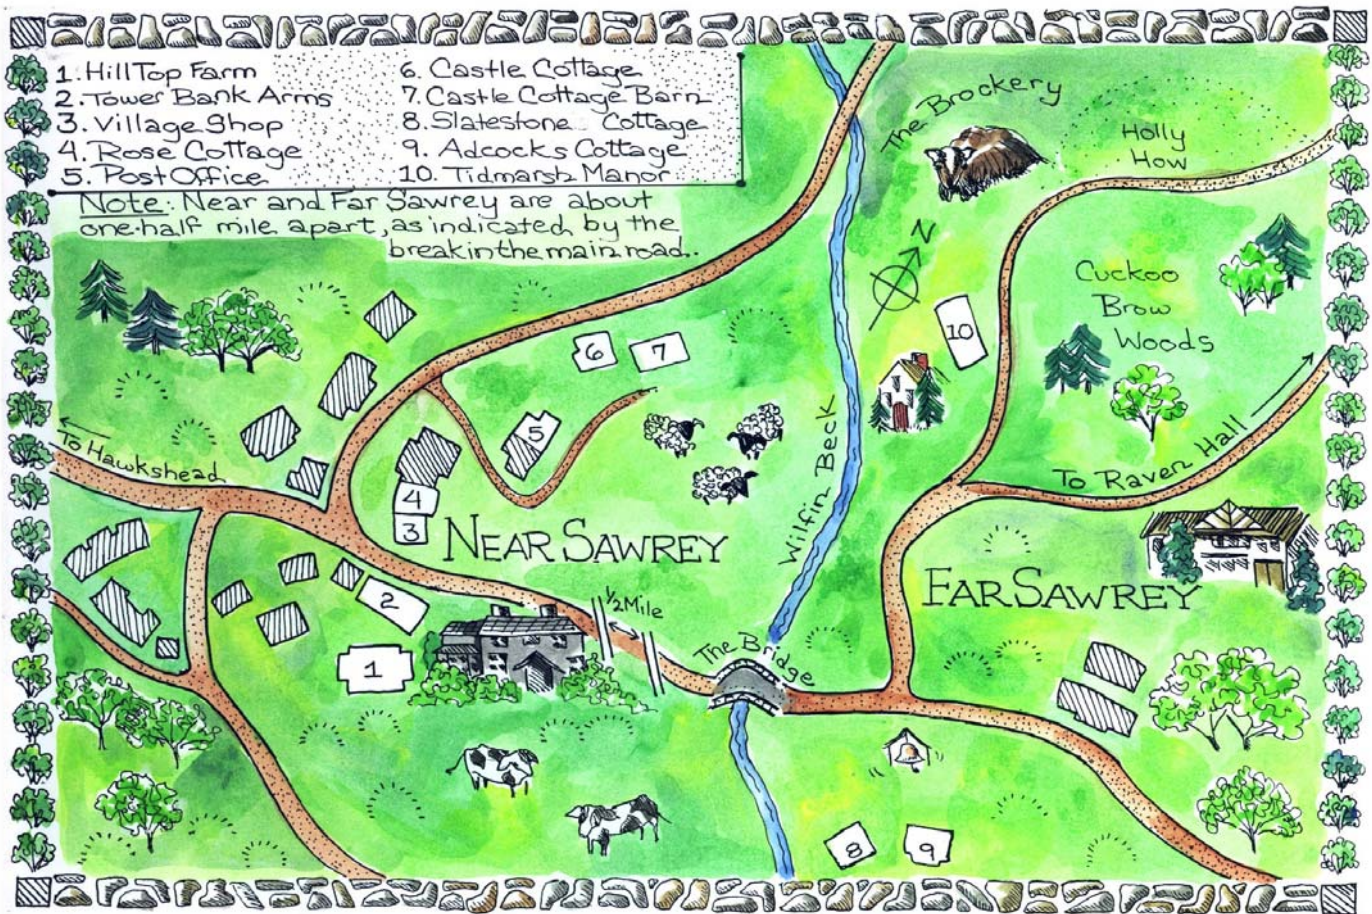 1. Hill Top Farm
2. Tower Bank Arms
3. Village Shop
4. Rose Cottage
5. Post Office
6. Castle Cottage
7. Castle Cottage Barn
8. Slatestone Cottage
9. Adcocks Cottage
10. Tidmarsh Manor
Note: Near and Far Sawrey are about
one-half mile apart, as indicated by the
break in the main road..
The Brockery
Holly
How
N
Cuckoo
Brow
Woods
10
6
7
5
To Hawkshead
4
3
NEAR SAWREY
Wilfin Beck
To Raven Hall
FAR SAWREY
2
1/2 Mile
The Bridge
1
8
9